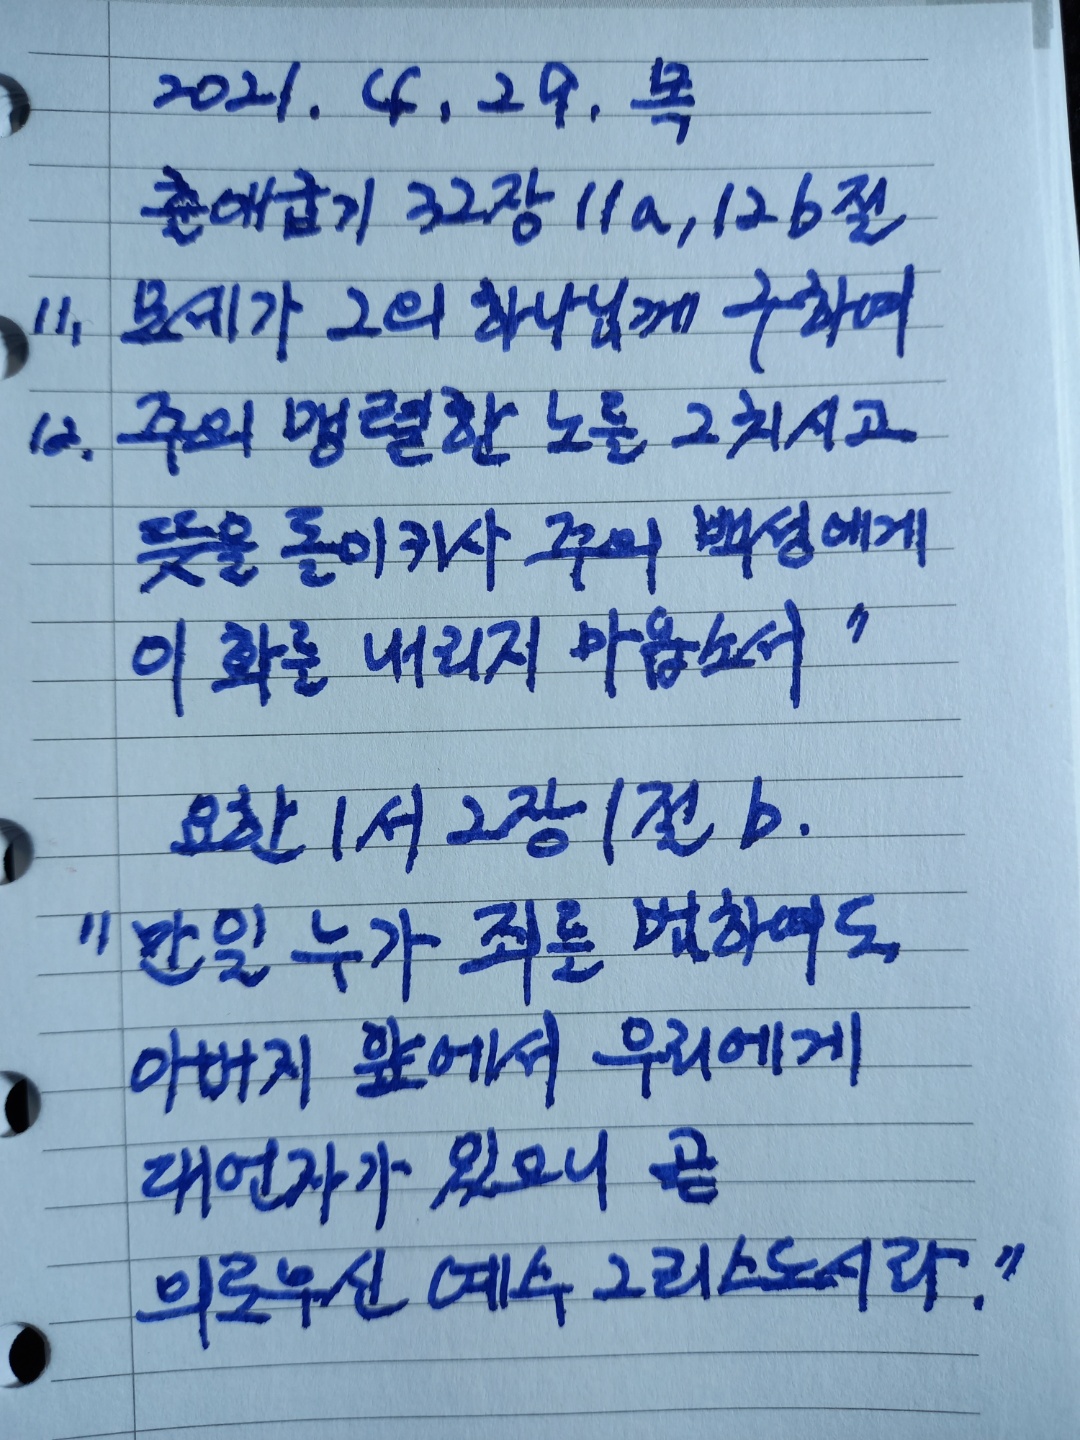 2021. 4. 29. 목
출애급기 32장 11a, 12b절
11. 모세가 그의 하나님께 구하여
12. 주의 맹렬한 노를 그치시고
뜻을 돌이키사 주의 백성에게
이 화를 내리지 마옵소서 "
요한 1서 2장 1절 b.
" 만일 누가 죄를 범하여도
아버지 앞에서 우리에게
대언자가 있으니 곧
의로우신 예수 그리스도시라. "